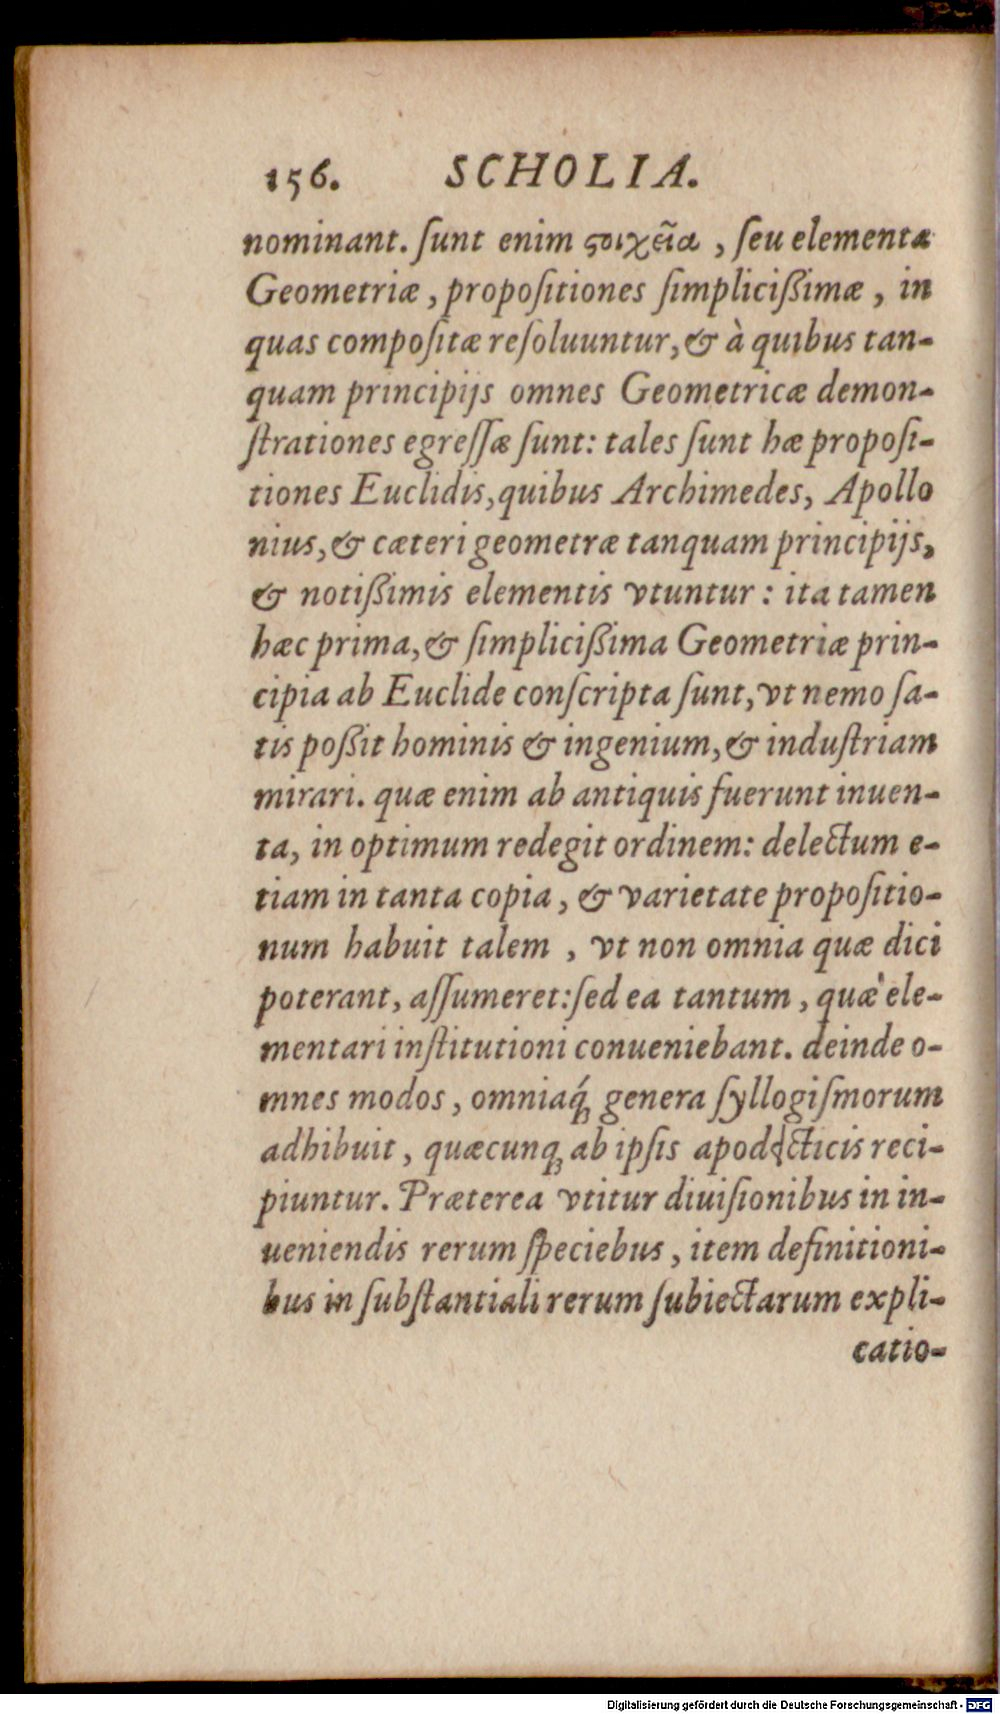 156. SCHOLIA.
nominant. ſunt enim ϛοιχεῖα, ſeu elementa
Geometriæ, propoſitiones ſimpliciſſimæ, in
quas compoſitæ reſoluuntur, & à quibus tan-
quam principijs omnes Geometricæ demon-
ſtrationes egreſſæ ſunt: tales ſunt hæ propoſi-
tiones Euclidis, quibus Archimedes, Apollo
nius, & cæteri geometræ tanquam principijs,
& notißimis elementis vtuntur: ita tamen
hæc prima, & ſimplicißima Geometriæ prin-
cipia ab Euclide conſcripta ſunt, vt nemo ſa-
tis poßit hominis & ingenium, & induſtriam
mirari. quæ enim ab antiquis fuerunt inuen-
ta, in optimum redegit ordinem: delectum e-
tiam in tanta copia, & varietate propoſitio-
num habuit talem, vt non omnia quæ dici
poterant, aſſumeret: ſed ea tantum, quæ ele-
mentari inſtitutioni conueniebant. deinde o-
mnes modos, omniaq́; genera ſyllogiſmorum
adhibuit, quæcunq; ab ipſis recipiuntur reci-
piuntur. Præterea vtitur diuiſionibus in in-
ueniendis rerum ſpeciebus, item definitioni-
bus in ſubſtantiali rerum ſubiectarum expli-
catio-
Digitalisierung gefördert durch die Deutsche Forschungsgemeinschaft - DFG